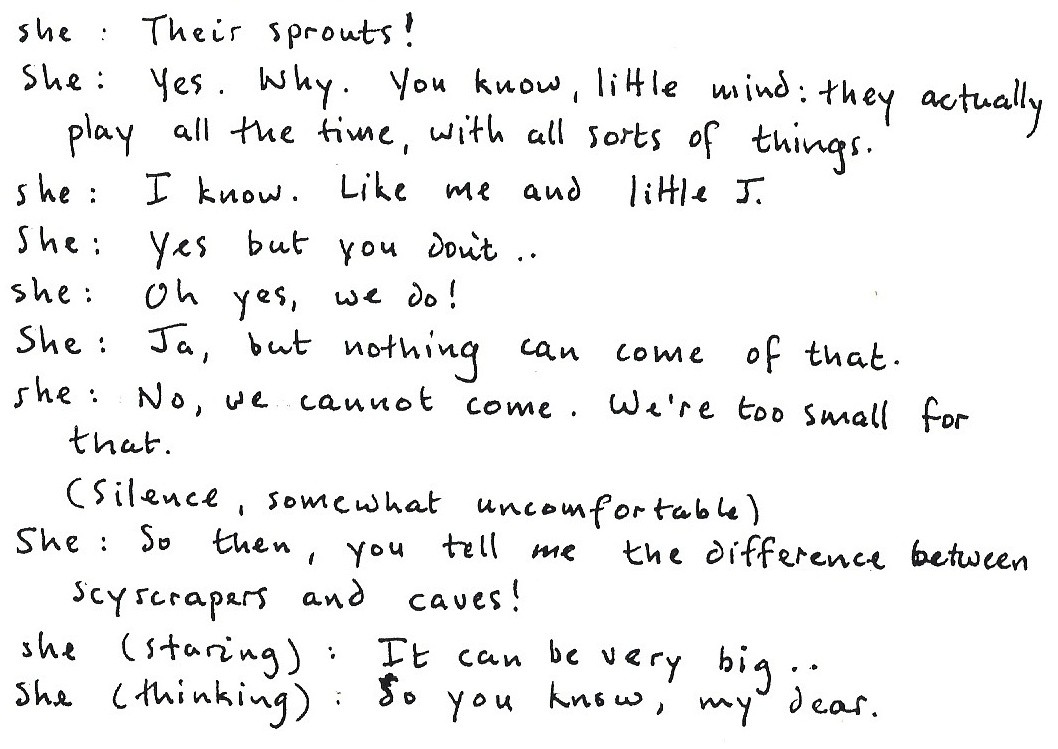 she : Their sprouts!
She : Yes. Why. You know, little mind: they actually
play all the time, with all sorts of things.
she : I know. Like me and little J.
She : Yes but you don't ..
she : Oh yes, we do!
She : Ja, but nothing can come of that.
she : No, we cannot come. We're too small for
that.
(Silence, somewhat uncomfortable)
She : So then, you tell me the difference between
scyscrapers and caves!
she (staring) : It can be very big ..
She (thinking) : So you know, my dear.